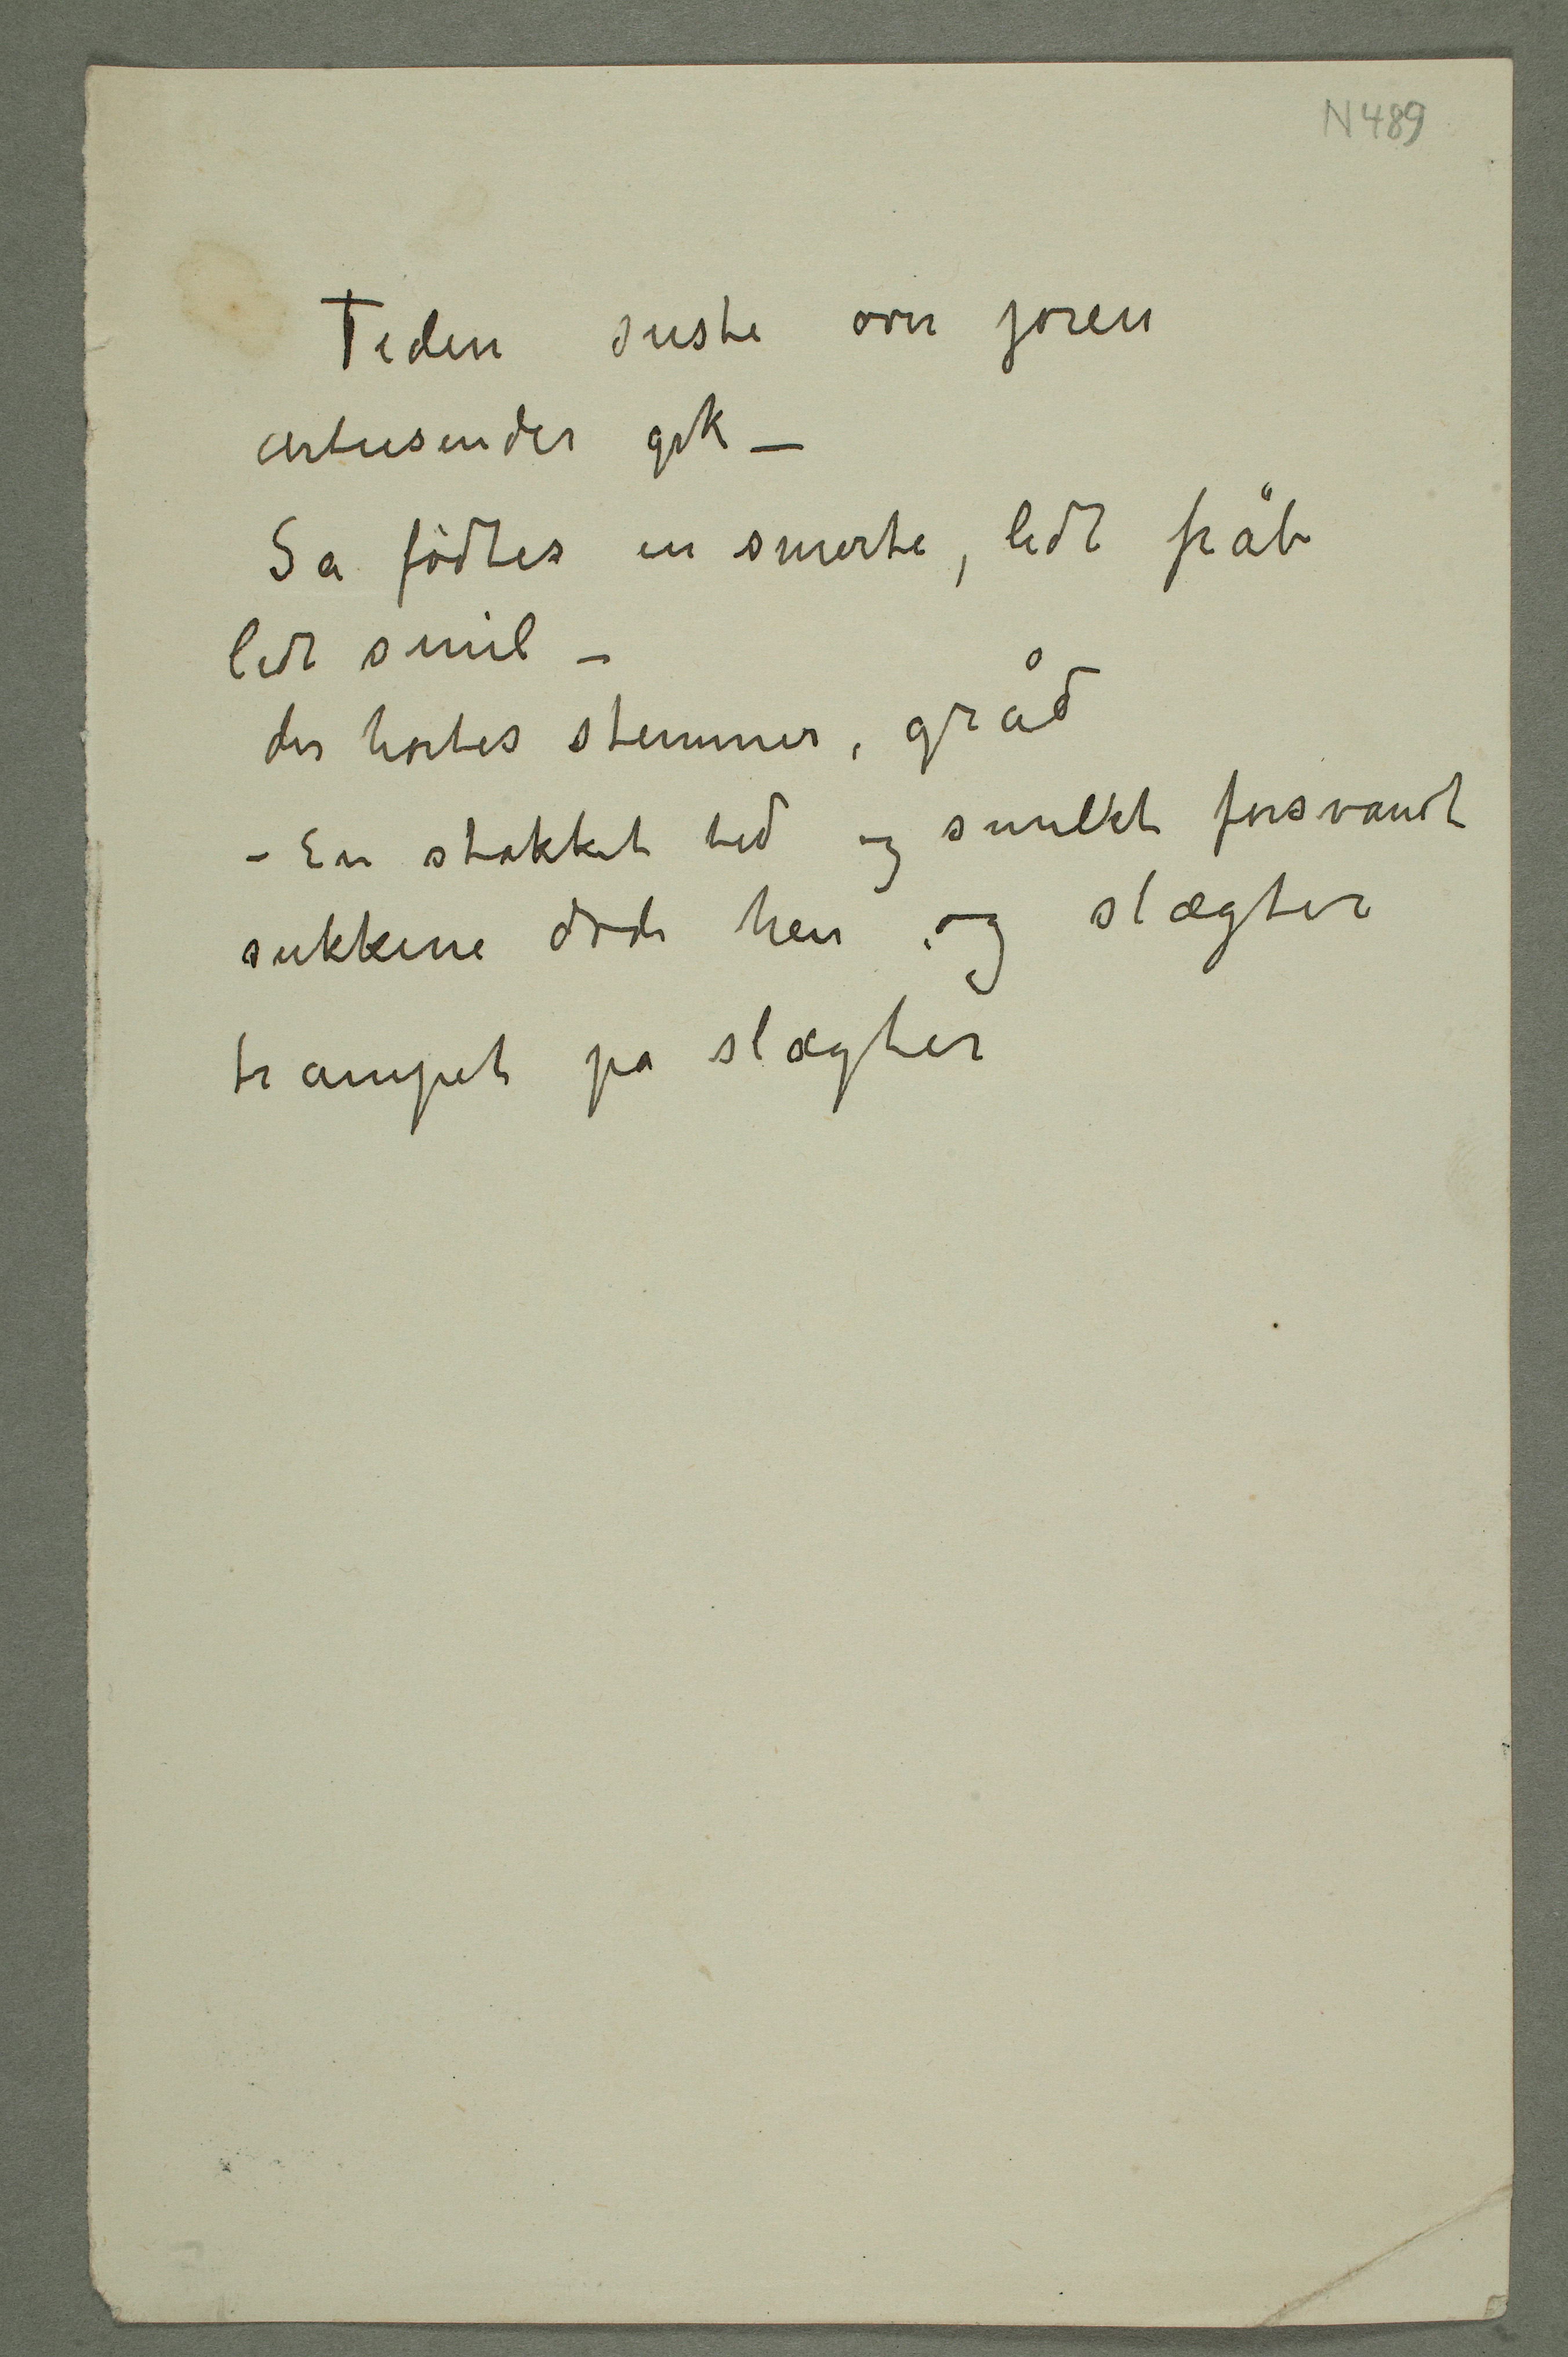 N 489
Tiden suste over joren
artusender gik –
Sa födtes en smerte, lidt håb
lidt smil –
der hørtes stemmer, gråd
– En stakket tid og smilet forsvandt
sukkene døde hen og slægter
trampet pa slægter